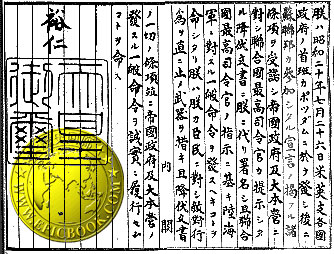 朕ハ昭和二十年七月二十六日米英支各國
政府ノ首班カポツダムニ於テ發シ後ニ
蘇聯邦カ參加シタル宣言ノ揭クル諸
條項ヲ受諾シ帝國政府及大本營ニ
對シ聯合國最高司令官カ提示シタ
ル降伏文書ニ朕ニ代リ署名シ且聯合
國最高司令官ノ指示ニ基キ陸海
軍ニ對スル一般命令ヲ發スヘキコトヲ
命シタリ朕ハ朕カ臣民ニ對シ敵對行
爲ヲ直ニ止メ武器ヲ措キ且降伏文書
內閣
ノ一切ノ條項竝ニ帝國政府及大本營ノ
發スル一般命令ヲ誠實ニ履行セム
コトヲ命ス
裕仁
天皇
御璽
WWW.EPICBOOK.COM